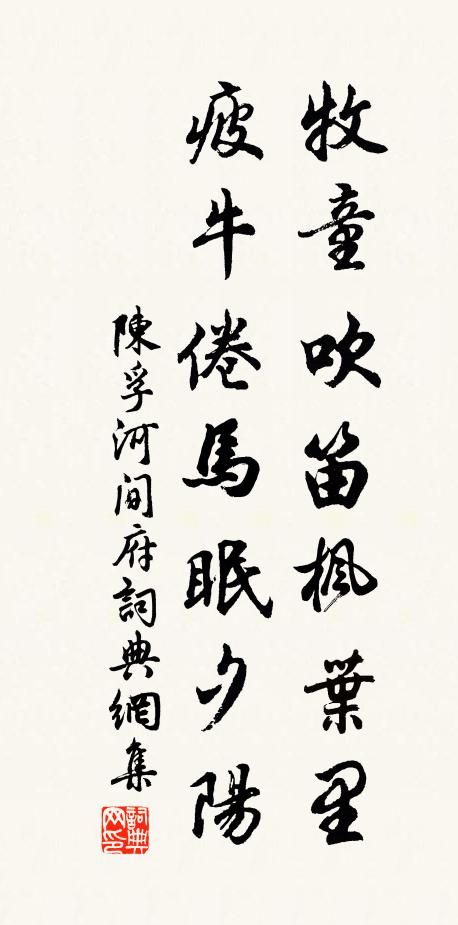 牧童吹笛枫葉里
疲牛倦馬眠夕陽
陳孚河间府詞典網集
詞典
网印